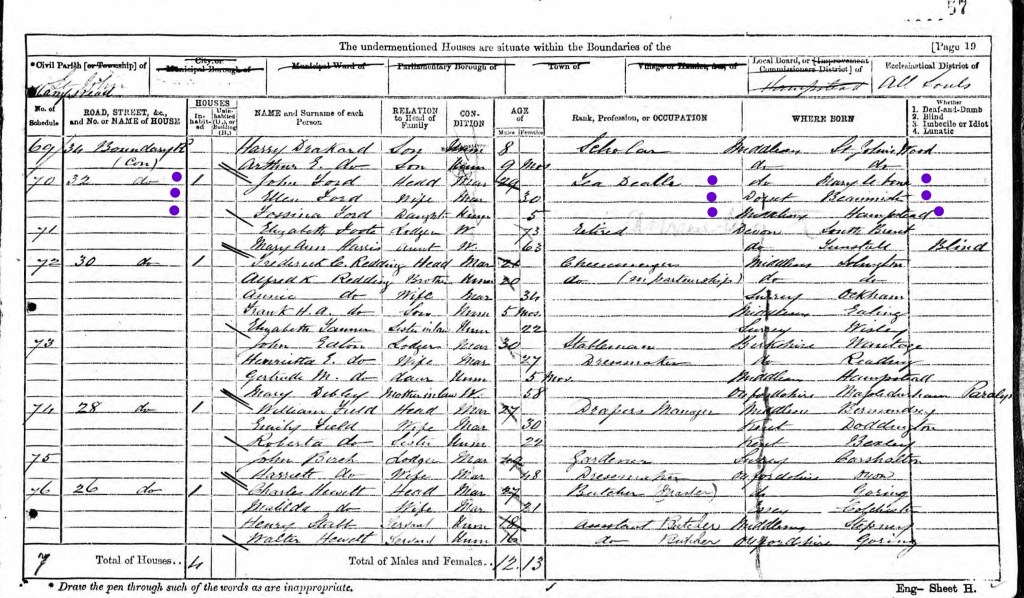 57
The undermentioned Houses are situate within the Boundaries of the [Page 19
*Civil Parish [or Township] of City or Municipal Borough of Municipal Ward of Parliamentary Borough of Town of Village or Hamlet, &c., of Local Board, or [Improvement Commissioners District] of Ecclesiastical District of
Hampstead Hampstead All Souls
No. of Schedule ROAD, STREET, &c., and No. or NAME of HOUSE HOUSES Inhabited Uninhabited (U.), or Building (B.) NAME and Surname of each Person RELATION to Head of Family CONDITION AGE Males Females Rank, Profession, or OCCUPATION WHERE BORN Whether 1. Deaf-and-Dumb 2. Blind 3. Imbecile or Idiot 4. Lunatic
69 34 Boundary Harry Drakard Son Unm 8 Scholar Middlesex St. John's Wood
(Con) Arthur E. do Son Unm 9 Mos do do
70 32 do 1 John Ford Head Mar 29 Tea Dealer do Marylebone
Ellen Ford Wife Mar 30 Dorset Beaminster
Ford Daught Unm 5 Middlesex Hampstead
71 Elizabeth Foote Lodger W. 73 Retired Devon South Brent
Mary Ann Harris Aunt W. 63 do Blind
72 30 do 1 Frederick C. Redding Head Mar Cheesemonger Middlesex Islington
Alfred K Redding Brother Unm 20 do (in partnership) do do
Annie do Wife Mar 34 Surrey Ockham
Frank H. A. do Son Unm 5 Mos. Middlesex Ealing
Elizabeth Tanner Sister in law Unm 22 Surrey Wisley
73 John Eaton Lodger Mar 30 Stableman Berkshire Wantage
Henrietta E. do Wife Mar 27 Dressmaker do Reading
Gertrude M. do daur Unm 5 Mos. Middlesex Hampstead
Mary Mother in law W. 58 Oxfordshire Mapledurham Paralys
74 28 do 1 William Field Head Mar 27 Drapers Manager Middlesex Bermondsey
Emily Field Wife Mar 30 Kent Doddington
Roberta do Sister Unm 22 Kent Bexley
75 John Birch Lodger Mar Gardener Surrey Carshalton
Harriett do Wife Mar 48 Dressmaker Oxfordshire
76 26 do 1 Charles Hewett Head Mar 27 Butcher (Master) do Goring
Matilda do Wife Mar 21 Colchester
Henry Servant Unm 18 Assistant Butcher Middlesex Stepney
Walter Hewett Servant Unm 16 do Butcher Oxfordshire Goring
7 Total of Houses.. 4 Total of Males and Females.. 12 13
* Draw the pen through such of the words as are inappropriate. Eng– Sheet H.